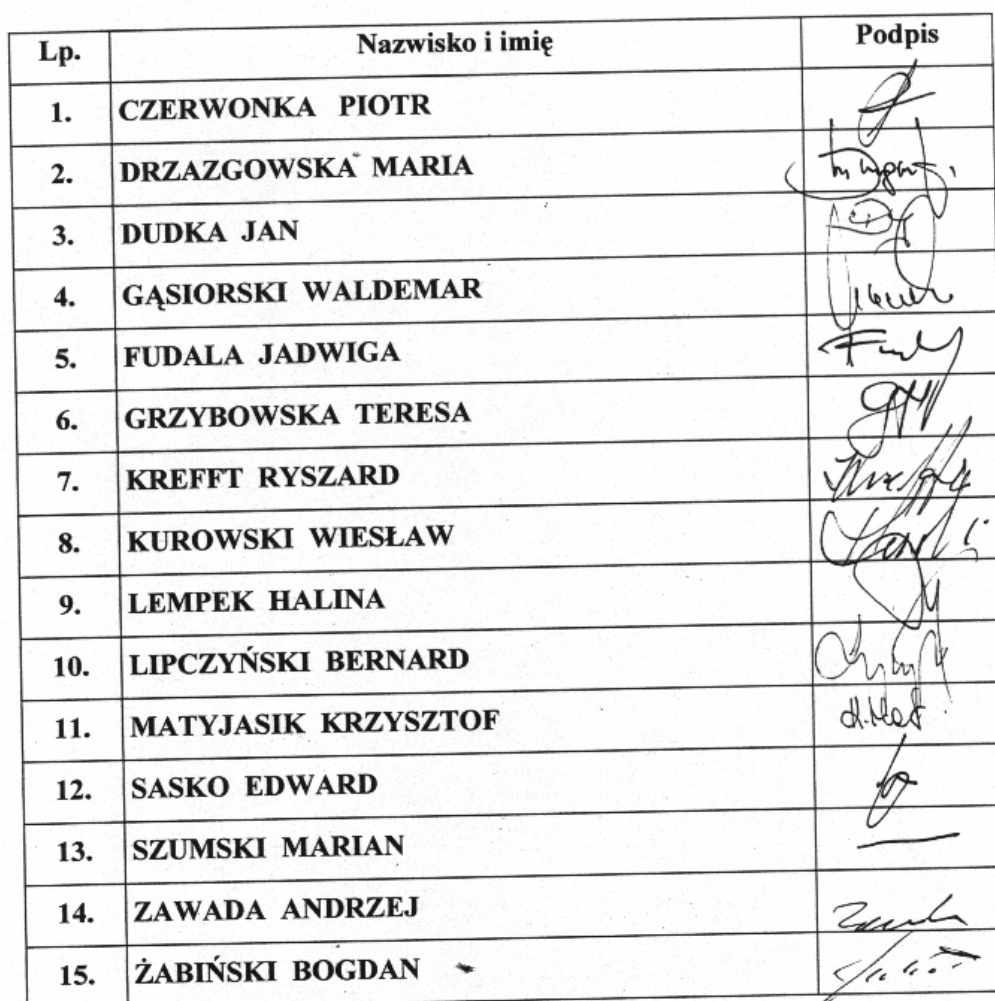 Lp. Nazwisko i imię Podpis
1. CZERWONKA PIOTR
2. DRZAZGOWSKA MARIA
3. DUDKA JAN
4. GĄSIORSKI WALDEMAR
5. FUDALA JADWIGA
6. GRZYBOWSKA TERESA
7. KREFFT RYSZARD
8. KUROWSKI WIESŁAW
9. LEMPEK HALINA
10. LIPCZYŃSKI BERNARD
11. MATYJASIK KRZYSZTOF
12. SASKO EDWARD
13. SZUMSKI MARIAN
14. ZAWADA ANDRZEJ
15. ŻABIŃSKI BOGDAN